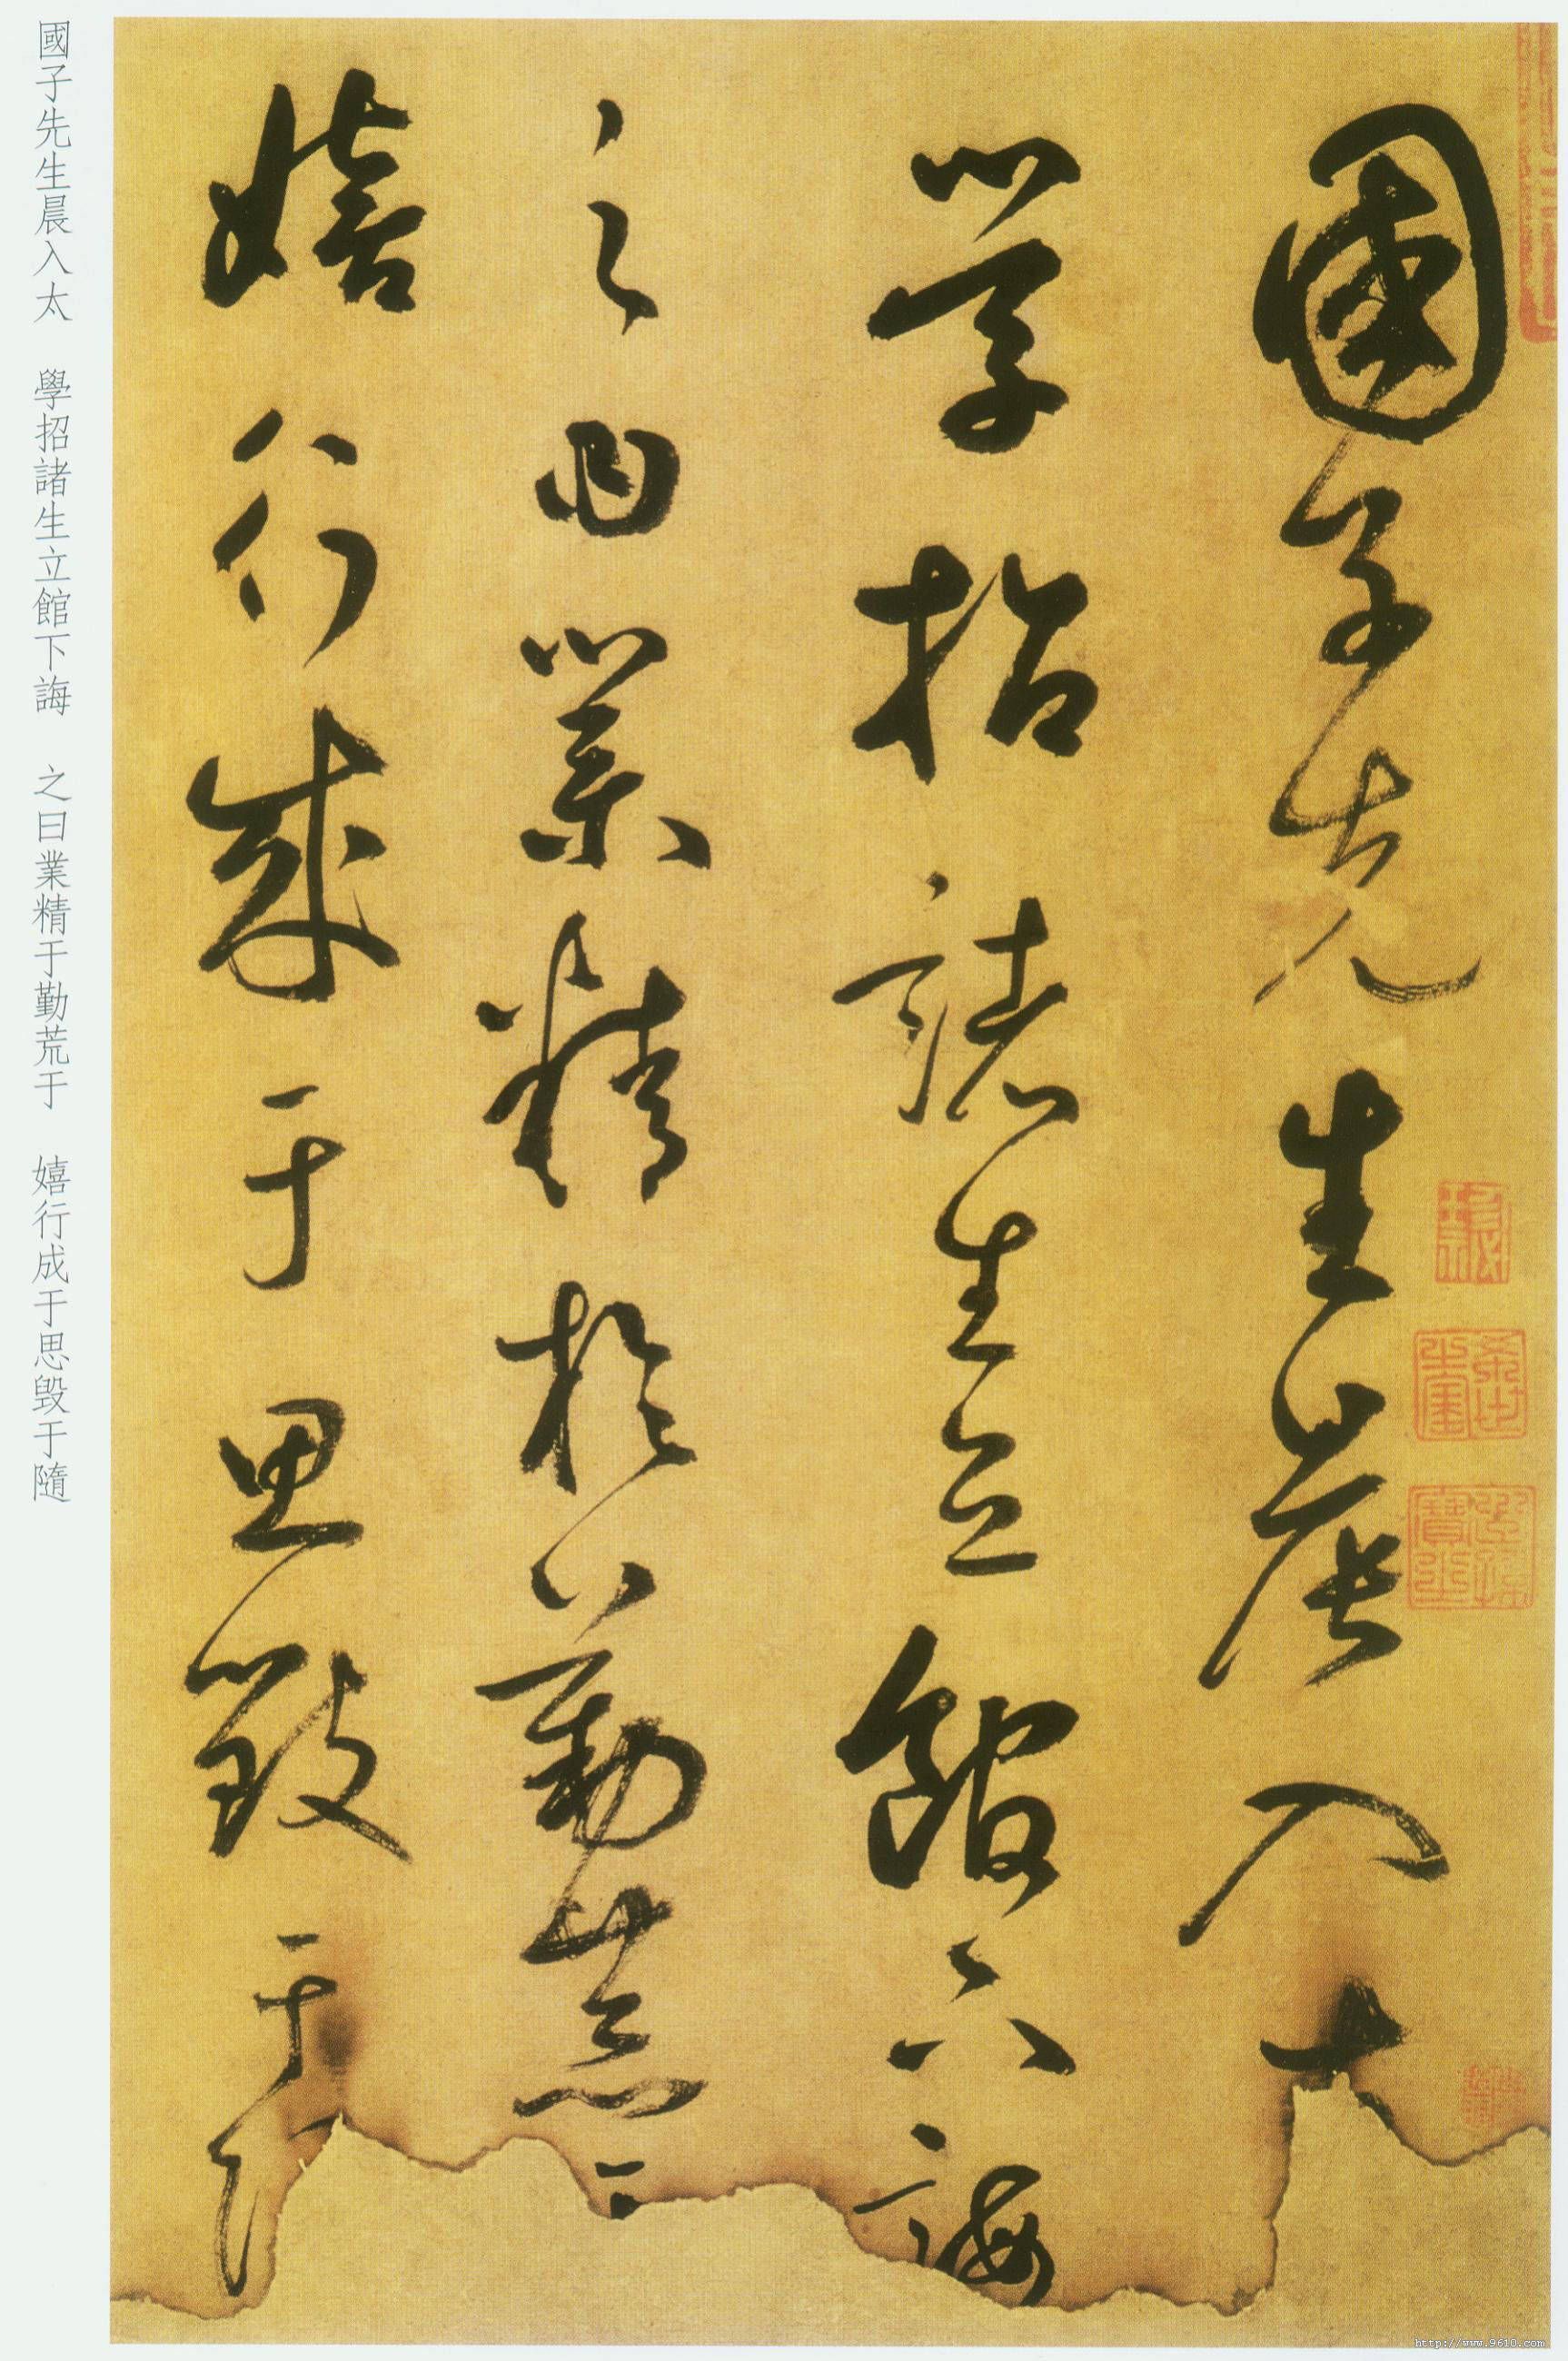 國子先生晨入太
學招諸生立館下誨
之曰業精於勤荒于
嬉行成于思毀于
國子先生晨入太　學招諸生立館下誨　之曰業精于勤荒于　嬉行成于思毀于隨
http://www.9610.com